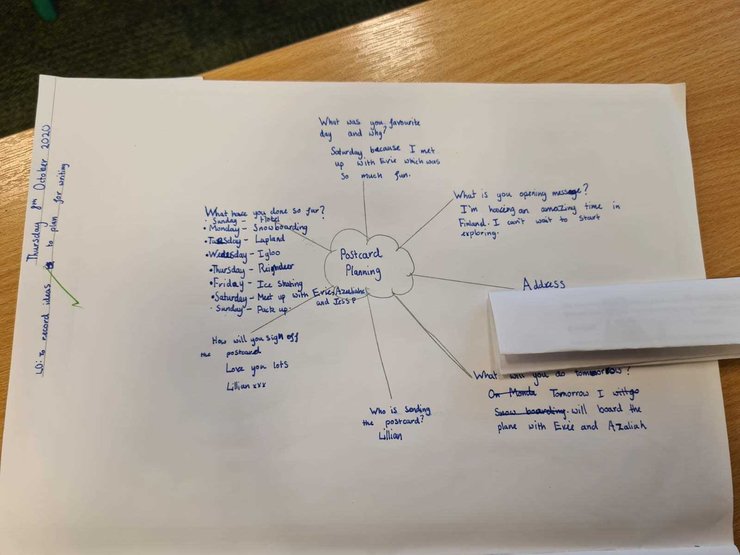 Thursday 8th October 2020
LO: To record ideas to plan for writing
What was you favourite
day and why?
Saturday because I met
up with Evie which was
so much fun.
What is you opening message?
I'm having an amazing time in
Finland. I can't wait to start
exploring.
What have you done so far?
Sunday - Hotel
• Monday - Snowboarding
• Tuesday - Lapland
• Wednesday - Igloo
• Thursday - Reindeer
• Friday - Ice Skating
• Saturday - Meet up with Evie, Azaliah
and Jess P
• Sunday - Pack up
Postcard
Planning
Address
How will you sign off
the postcard
Love you lots
Lillian xxx
What will you do tomorrow?
On Monda Tomorrow I will go
Snow boarding. will board the
plane with Evie and Azaliah
Who is sending
the postcard?
Lillian